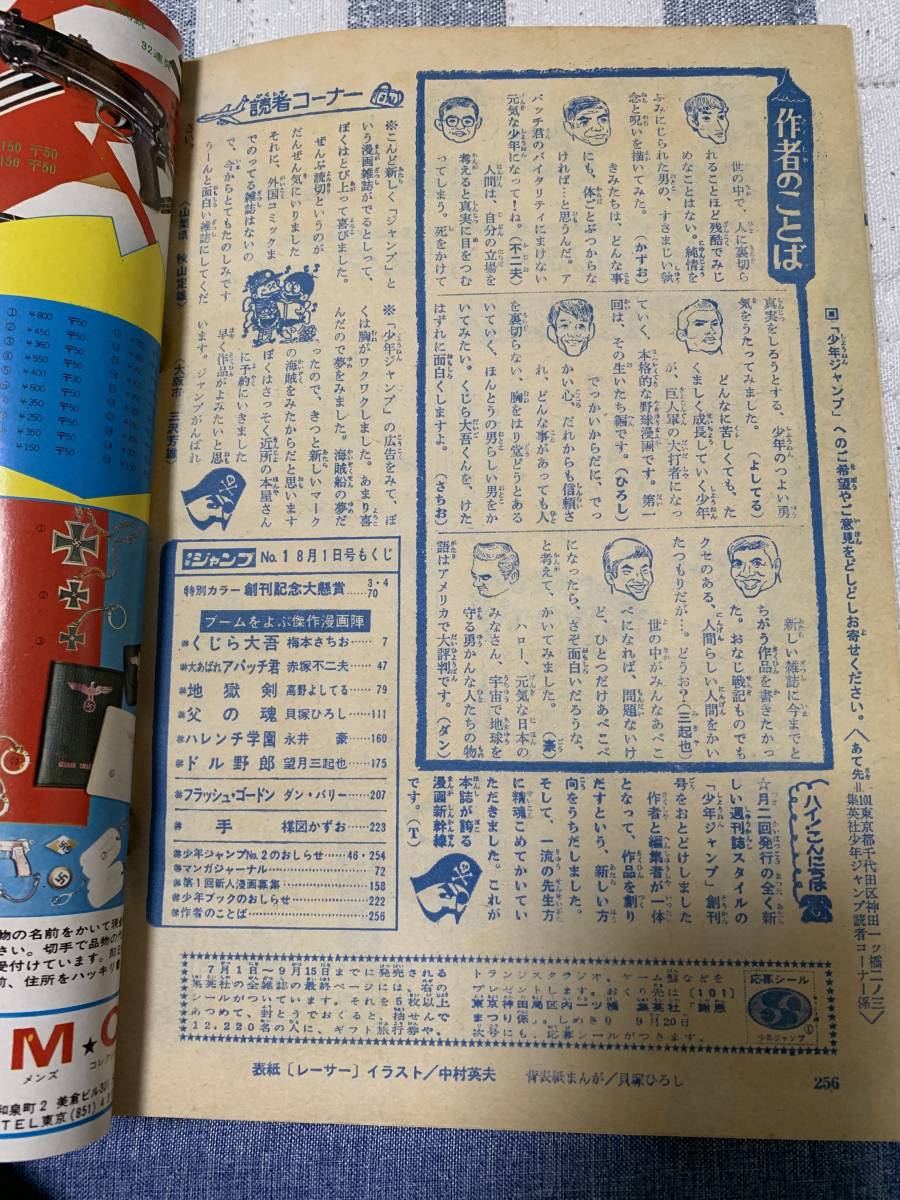 ■「少年ジャンプ」へのご希望やご意見をどしどしお寄せください。〈あて先＝101東京都千代田区神田一ッ橋二ノ三
集英社少年ジャンプ読者コーナー係〉
作者のことば
世の中で、人に裏切ら
れることほど残酷でみじ
めなことはない。純情を
ふみにじられた男の、すさまじい執
念と呪いを描いてみた。　（かずお）
きみたちは、どんな事
にも、体ごとぶつからな
ければ―と思うんだ。ア
パッチ君のバイタリティにまけない
元気な少年になって！ね。（不二夫）
人間は、自分の立場を
考えると真実に目をつむ
ってしまう。死をかけて
真実をしろうとする、少年のつよい勇
気をうたってみました。　（よしてる）
どんなに苦しくても、た
くましく成長していく少年
が、巨人軍の大打者になっ
ていく、本格的な野球漫画です。第一
回は、その生いたち編です。（ひろし）
でっかいからだに、でっ
かい心。だれからも信頼さ
れ、どんな事があっても人
を裏切らない、胸をはり堂どうとある
いていく、ほんとうの男らしい男をか
いてみたい。くじら大吾くんを、けた
はずれに面白くしますよ。（さちお）
新しい雑誌に今までと
ちがう作品を書きたかっ
た。おなじ戦記ものでも
クセのある、人間らしい人間をかい
たつもりだが…。どうお？（三起也）
世の中がみんなあべこ
べになれば、問題ないけ
ど、ひとつだけあべこべ
になったら、さぞ面白いだろうな、
と考えて、かいてみました。（豪）
ハロー、元気な日本の
みなさん、宇宙で地球を
守る勇かんな人たちの物
語はアメリカで大評判です。（ダン）
ハイ！こんにちは
☆月二回発行の全く新
しい週刊誌スタイルの
「少年ジャンプ」創刊
号をおとどけしました
作者と編集者が一体
となって、作品を創り
だすという、新しい方
向をうちだしました。
そして、一流の先生方
に精魂こめてかいてい
ただきました。これが
本誌が誇る
漫画新幹線
です。（T）
読者コーナー
※こんど新しく「ジャンプ」と
いう漫画雑誌がでるとしって、
ぼくはとび上って喜びました。
ぜんぶ読切というのが
だんぜん気にいりました
それに、外国コミックま
でのってる雑誌はないの
で、今からとてもたのしみです
うーんと面白い雑誌にしてくだ
さい。
〈山梨県　秋山定雄〉
※「少年ジャンプ」の広告をみて、ぼ
くは胸がワクワクしました。あまり喜
んだので夢をみました。海賊船の夢だ
ったので、きっと新しいマーク
の海賊をみたからだと思います
ぼくはさっそく近所の本屋さん
に予約にいきました
早く作品がよみたいと思
います。ジャンプがんばれ
〈大阪市　三沢芳雄〉
少年ジャンプ No.1 8月1日号もくじ
特別カラー 創刊記念大懸賞 3・4 70
ブームをよぶ傑作漫画陣
くじら大吾 梅本さちお…… 7
大あばれアパッチ君 赤塚不二夫…… 47
地獄剣 高野よしてる…… 79
父の魂 貝塚ひろし……111
ハレンチ学園 永井　豪……160
ドル野郎 望月三起也……175
フラッシュ・ゴードン ダン・バリー……207
手 楳図かずお……223
少年ジャンプNo.2のおしらせ……46・254
マンガジャーナル……72
第1回新人漫画募集……158
少年ブックのおしらせ……222
作者のことば……256
7月1日～9月15日までに発売される
集英社の全雑誌の最終ページには、右の
シールがついています。それを5枚以上
あつめて、封とうでおくると、抽せんで
12,220名の人に、ギフト旅行券や、
トランジスタラジオ、ゲーム盤などを
プレゼントします。おくり先は〔101〕
しめきり　9月20日
次号にも、応募シールがつきます。
応募シール
少年ジャンプ
表紙〔レーサー〕イラスト／中村英夫　背表紙まんが／貝塚ひろし
256
32連発
150 〒50
150 〒50
① ¥800 〒50
② ¥450 〒50
¥360 〒50
¥550 〒50
¥400 〒50
¥600 〒50
¥350 〒50
¥250 〒50
¥350 〒50
¥150 〒50
①
②
③
物の名前をかいて現金
さい。切手で品物の
受付けています。
前、住所をハッキリ
M★C
メンズ　コレク
和泉町2 美倉ビル301
TEL東京(851)4